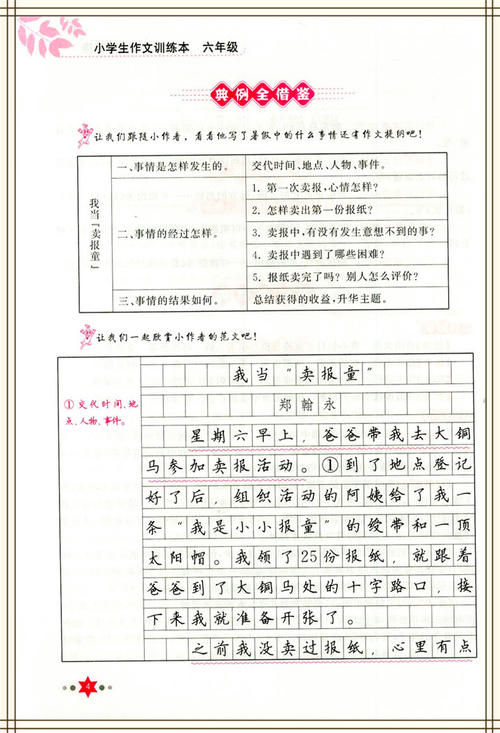 小学生作文训练本 六年级
典例全借鉴
让我们跟随小作者，看看他写了暑假中的什么事情还有作文提纲吧！
我当“卖报童”
一、事情是怎样发生的。
交代时间、地点、人物、事件。
二、事情的经过怎样。
1. 第一次卖报，心情怎样？
2. 怎样卖出第一份报纸？
3. 卖报中，有没有发生意想不到的事？
4. 卖报中遇到了哪些困难？
5. 报纸卖完了吗？别人怎么评价？
三、事情的结果如何。
总结获得的收益，升华主题。
让我们一起欣赏小作者的范文吧！
①交代时间、地
点、人物、事件。
我当“卖报童”
郑翰永
星期六早上，爸爸带我去大铜
马参加卖报活动。①到了地点登记
好了后，组织活动的阿姨给了我一
条“我是小小报童”的绶带和一顶
太阳帽。我领了25份报纸，就跟着
爸爸到了大铜马处的十字路口，接
下来我就准备开张了。
之前我没卖过报纸，心里有点
4